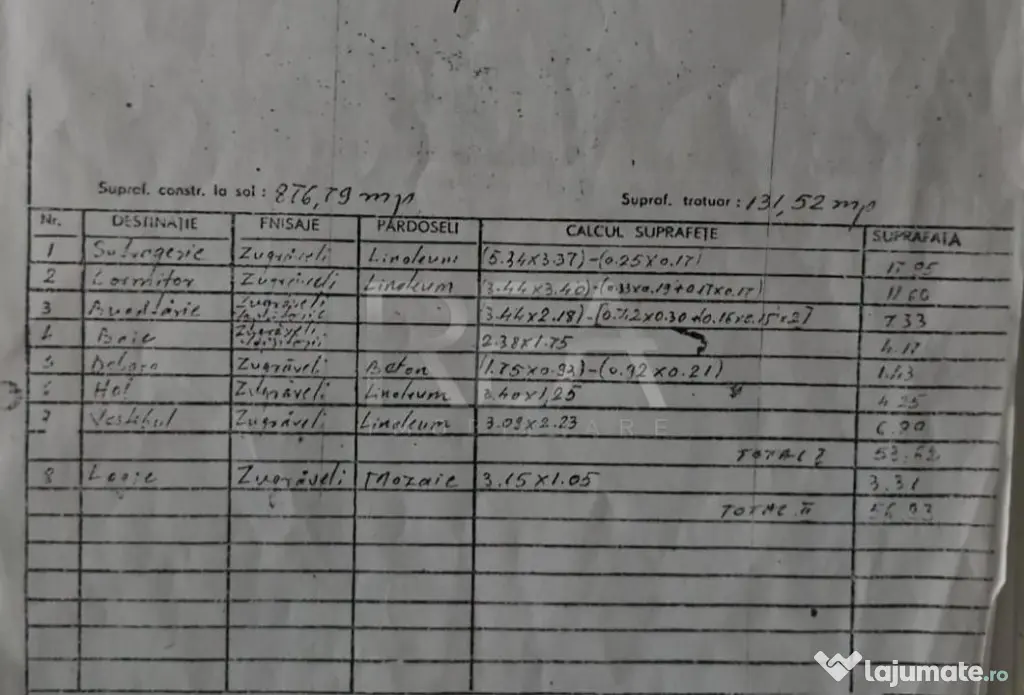 Supraf. constr. la sol : 876,79 mp Supraf. trotuar : 131,52 mp
Nr. DESTINAȚIE FNISAJE PARDOSELI CALCUL SUPRAFEȚE SUPRAFATA
1 Sufragerie Zugrăveli Linoleum (5.34x3.37)-(0.25x0.17)
2 Dormitor Zugrăveli Linoleum (3.44x3.40)-(0.33x0.19+0.17x0.17) 11.60
3 Bucătărie Zugrăveli (3.44x2.18)-[0.42x0.30+0.16x0.15x2] 7.33
4 Baie Zugrăveli 2.38x1.75
5 Debara Zugrăveli Beton (1.75x0.93)-(0.92x0.21) 1.43
6 Hol Zugrăveli Linoleum 3.40x1,25 4.25
7 Vestibul Zugrăveli Linoleum 3.09x2.23
TOTAL I 53.62
8 Logie Zugrăveli Mozaic 3.15x1.05 3.31
TOTAL II 56.93
lajumate.ro